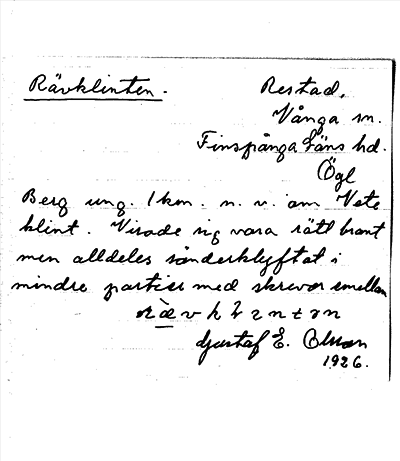 Rävklinten.
Restad,
Vånga sn.
Finspånga Läns hd.
Ögl
Berg ung. 1 km. n. v. om Vete
klint. Visade sig vara rätt brant
men alldeles sönderklyftat i
mindre partier med skrevor emellan
Gustaf E. Olsson
1926.